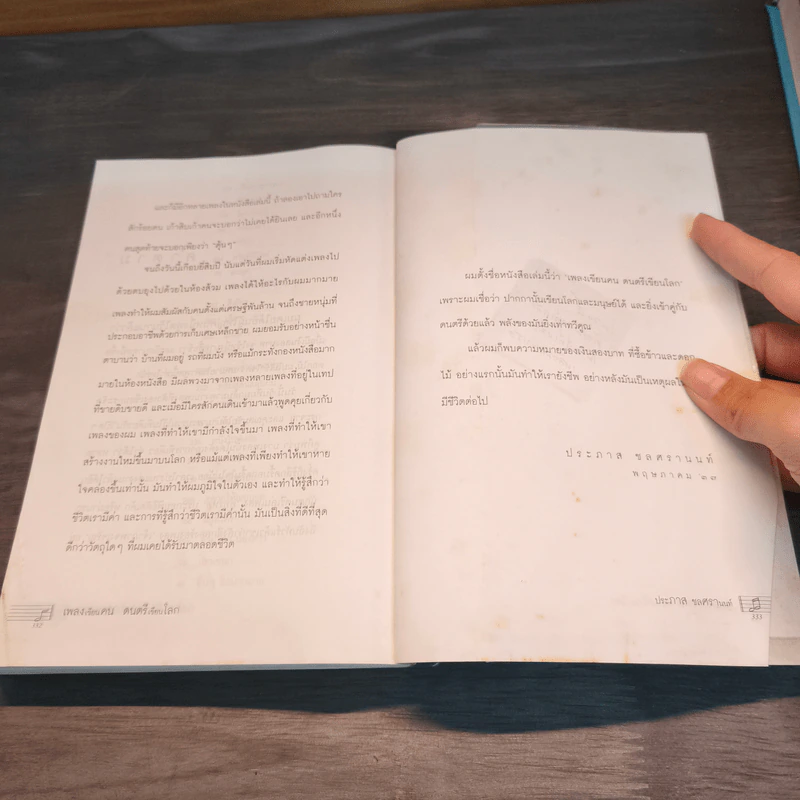 และก็มีอีกหลายเพลงในหนังสือเล่มนี้ ถ้าลองเอาไปถามใคร
สักร้อยคน เก้าสิบเก้าคนจะบอกว่าไม่เคยได้ยินเลย และอีกหนึ่ง
คนสุดท้ายจะบอกเพียงว่า "คุ้นๆ"
จนถึงวันนี้เกือบยี่สิบปี นับแต่วันที่ผมเริ่มหัดแต่งเพลงไป
ด้วยตบยุงไปด้วยในห้องส้วม เพลงได้ให้อะไรกับผมมากมาย
เพลงทำให้ผมสัมผัสกับคนตั้งแต่เศรษฐีพันล้าน จนถึงชายหนุ่มที่
ประกอบอาชีพด้วยการเก็บเศษเหล็กขาย ผมยอมรับอย่างหน้าชื่น
ตาบานว่า บ้านที่ผมอยู่ รถที่ผมนั่ง หรือแม้กระทั่งกองหนังสือมาก
มายในห้องหนังสือ มีผลพวงมาจากเพลงหลายเพลงที่อยู่ในเทป
ที่ขายดิบขายดี และเมื่อมีใครสักคนเดินเข้ามาแล้วพูดคุยเกี่ยวกับ
เพลงของผม เพลงที่ทำให้เขามีกำลังใจขึ้นมา เพลงที่ทำให้เขา
สร้างงานใหม่ขึ้นมาบนโลก หรือแม้แต่เพลงที่เพียงทำให้เขาหาย
ใจคล่องขึ้นเท่านั้น มันทำให้ผมภูมิใจในตัวเอง และทำให้รู้สึกว่า
ชีวิตเรามีค่า และการที่รู้สึกว่าชีวิตเรามีค่านั้น มันเป็นสิ่งที่ดีที่สุด
ดีกว่าวัตถุใดๆ ที่ผมเคยได้รับมาตลอดชีวิต
332
เพลงเขียนคน ดนตรีเขียนโลก
ผมตั้งชื่อหนังสือเล่มนี้ว่า 'เพลงเขียนคน ดนตรีเขียนโลก'
เพราะผมเชื่อว่า ปากกานั้นเขียนโลกและมนุษย์ได้ และยิ่งเข้าคู่กับ
ดนตรีด้วยแล้ว พลังของมันยิ่งเท่าทวีคูณ
แล้วผมก็พบความหมายของเงินสองบาท ที่ซื้อข้าวและดอก
ไม้ อย่างแรกนั้นมันทำให้เรายังชีพ อย่างหลังมันเป็นเหตุผล
มีชีวิตต่อไป
ประภาส ชลศรานนท์
พฤษภาคม '๓๗
ประภาส ชลศรานนท์
333